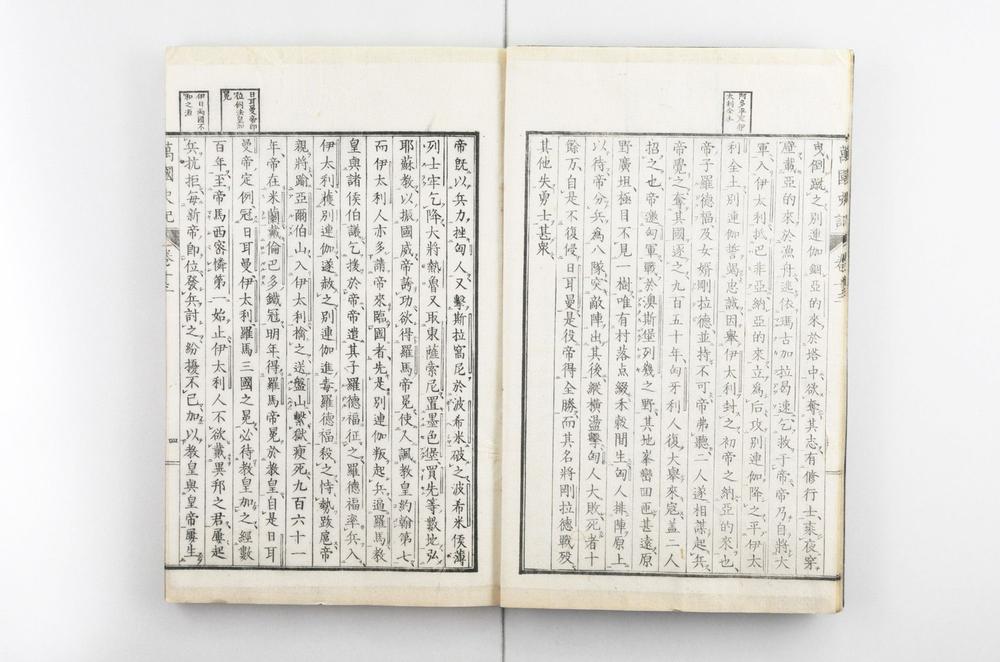 阿多率定伊
太利全土
曳倒蹴之別連伽錮亞的來於塔中欲奪其志有修行士乘夜穿
壁載亞的來於漁舟逃依瑪古加拉曷速乞救于帝帝乃自將大
軍入伊太利抵巴非亞納亞的來立爲后攻別連伽降之平伊太
利全土別連伽誓竭忠誠因舉伊太利封之初帝之納亞的來也
帝子羅德福及女婿剛拉德並持不可帝弗聽二人遂相謀起兵
帝覺之奪其國逐之九百五十年匈牙利人復大舉來寇蓋二人
招之也帝邀匈軍戰於澳斯堡列幾之野其地峯巒四匝甚遠原
野廣坦極目不見一樹唯有村落點綴禾穀間生匈人排陣原上
以待帝分兵爲八隊突敵陣出其後縱橫盪擊匈人大敗死者十
餘万自是不復侵日耳曼是役帝得全勝而其名將剛拉德戰歿
其他失勇士甚衆
萬國史記
日耳曼帝卽
位例法皇加
冕
伊日兩國不
和之源
帝旣以兵力挫匈人又擊斯拉窩尼於波希米破之波希米侯薄
列士牢乞降大將熱魯又取東薩索尼置墨色堡買先等數地弘
耶蘇教以振國威帝誇功欲得羅馬帝冕使人諷教皇約翰第七
而伊太利人亦多請帝來臨國者先是別連伽叛起兵逼羅馬教
皇與諸侯伯議乞援於帝帝遣其子羅德福征之羅德福率兵入
伊太利獲別連伽遂赦之別連伽進毒羅德福殺之恃勢跋扈帝
親將踰亞爾伯山入伊太利擒之送盤山繫獄瘐死九百六十一
年帝在米蘭戴倫巴多鐵冠明年得羅馬帝冕於教皇自是日耳
曼帝定例冠日耳曼伊太利羅馬三國之冕必待教皇加之經數
百年至帝馬西密憐第一始止伊太利人不欲戴異邦之君屢起
兵抗拒每新帝卽位發兵討之紛擾不已加以教皇與皇帝屢生
萬國史記
卷十三
四